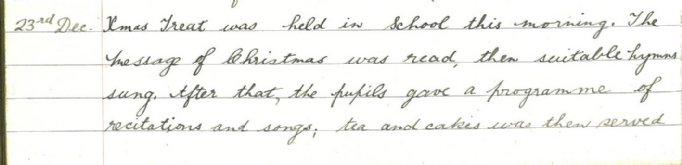 23rd Dec. Xmas Treat was held in School this morning. The
message of Christmas was read, then suitable hymns
sung. After that, the pupils gave a programme of
recitations and songs; tea and cakes was then served